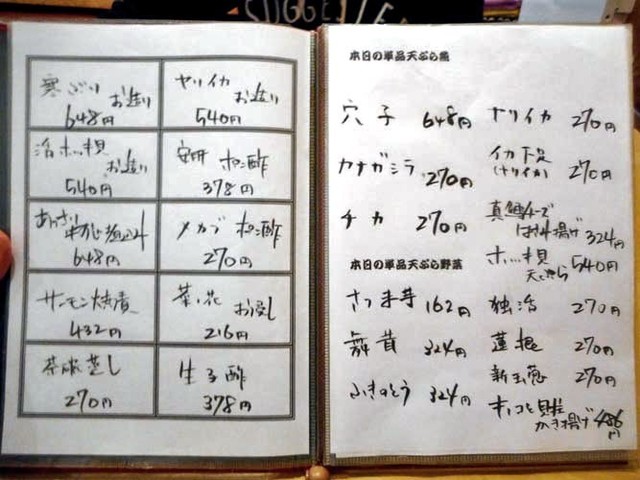 SUGGESTE
寒ぶり お造り
648円
ヤリイカ お造り
540円
活ホッキ貝 お造り
540円
安肝 ポン酢
378円
648円
メカブ ポン酢
270円
サーモン焼漬
432円
菜の花 お浸し
216円
茶碗蒸し
270円
生子酢
378円
本日の単品天ぷら魚
穴子 648円
カナガシラ 270円
チカ 270円
ヤリイカ 270円
イカ下足 270円
(ヤリイカ)
真鱈チーズ
はさみ揚げ 324円
ホッキ貝 540円
天ぷら
本日の単品天ぷら野菜
さつま芋 162円
舞茸 324円
ふきのとう 324円
独活 270円
蓮根 270円
新玉葱 270円
キノコと貝柱
かき揚げ 486円